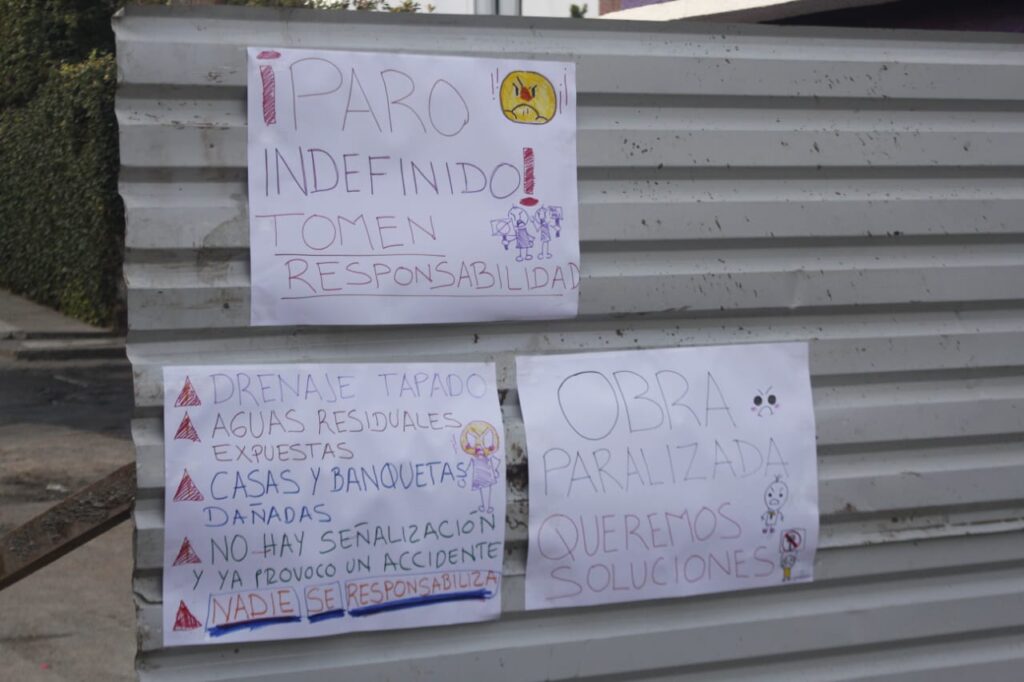 ¡PARO
INDEFINIDO!
TOMEN
RESPONSABILIDAD
DRENAJE TAPADO
AGUAS RESIDUALES
EXPUESTAS
CASAS Y BANQUETAS
DAÑADAS
NO HAY SEÑALIZACIÓN
Y YA PROVOCO UN ACCIDENTE
NADIE SE RESPONSABILIZA
OBRA
PARALIZADA
QUEREMOS
SOLUCIONES